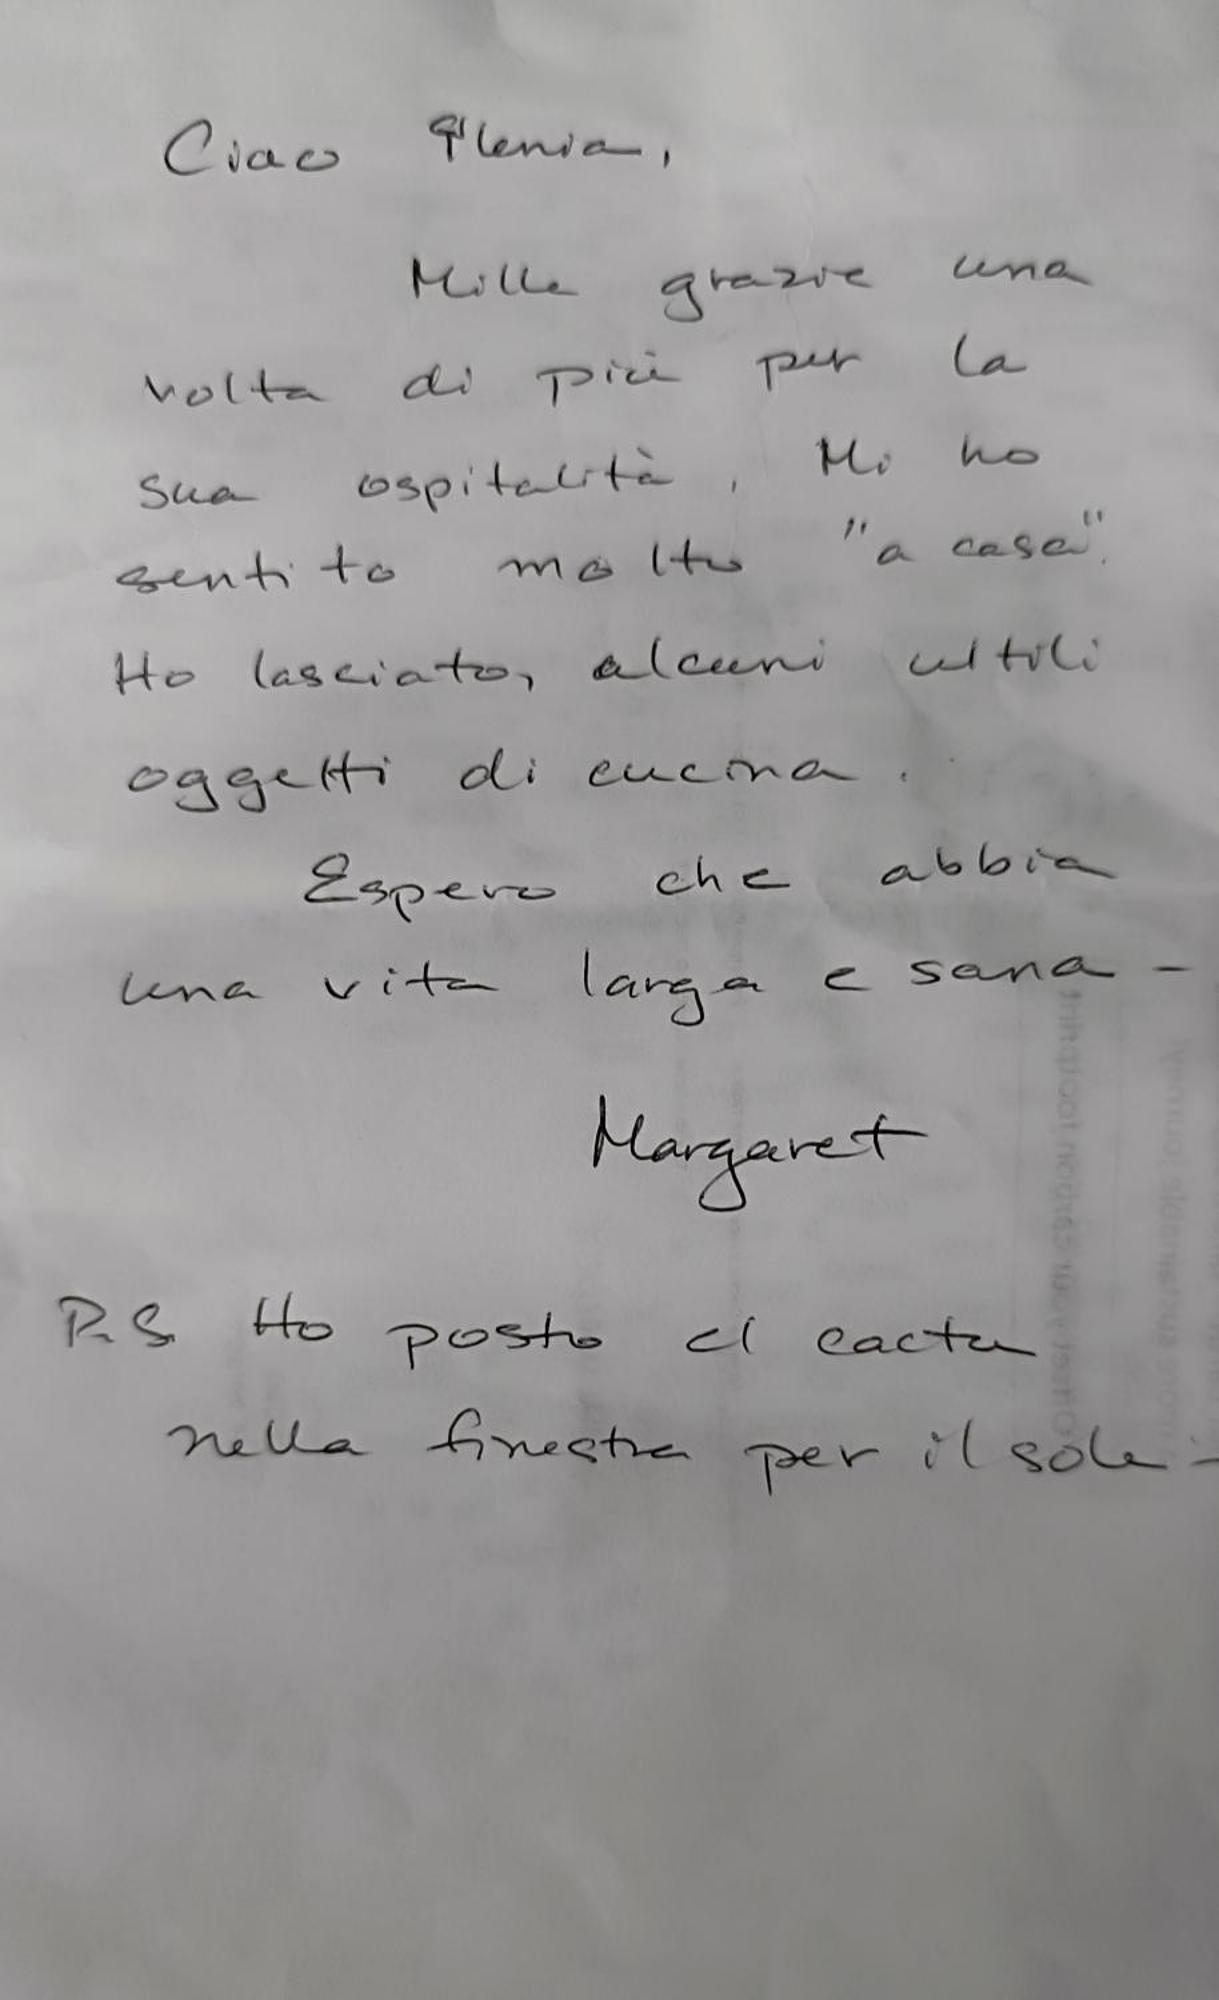 Ciao Ylenia,
Mille grazie una
volta di più per la
sua ospitalità. Mi ho
sentito molto "a casa".
Ho lasciato, alcuni ultili
oggetti di cucina.
Espero che abbia
una vita larga e sana -
Margaret
P.S. Ho posto el cactu
nella finestra per il sole -